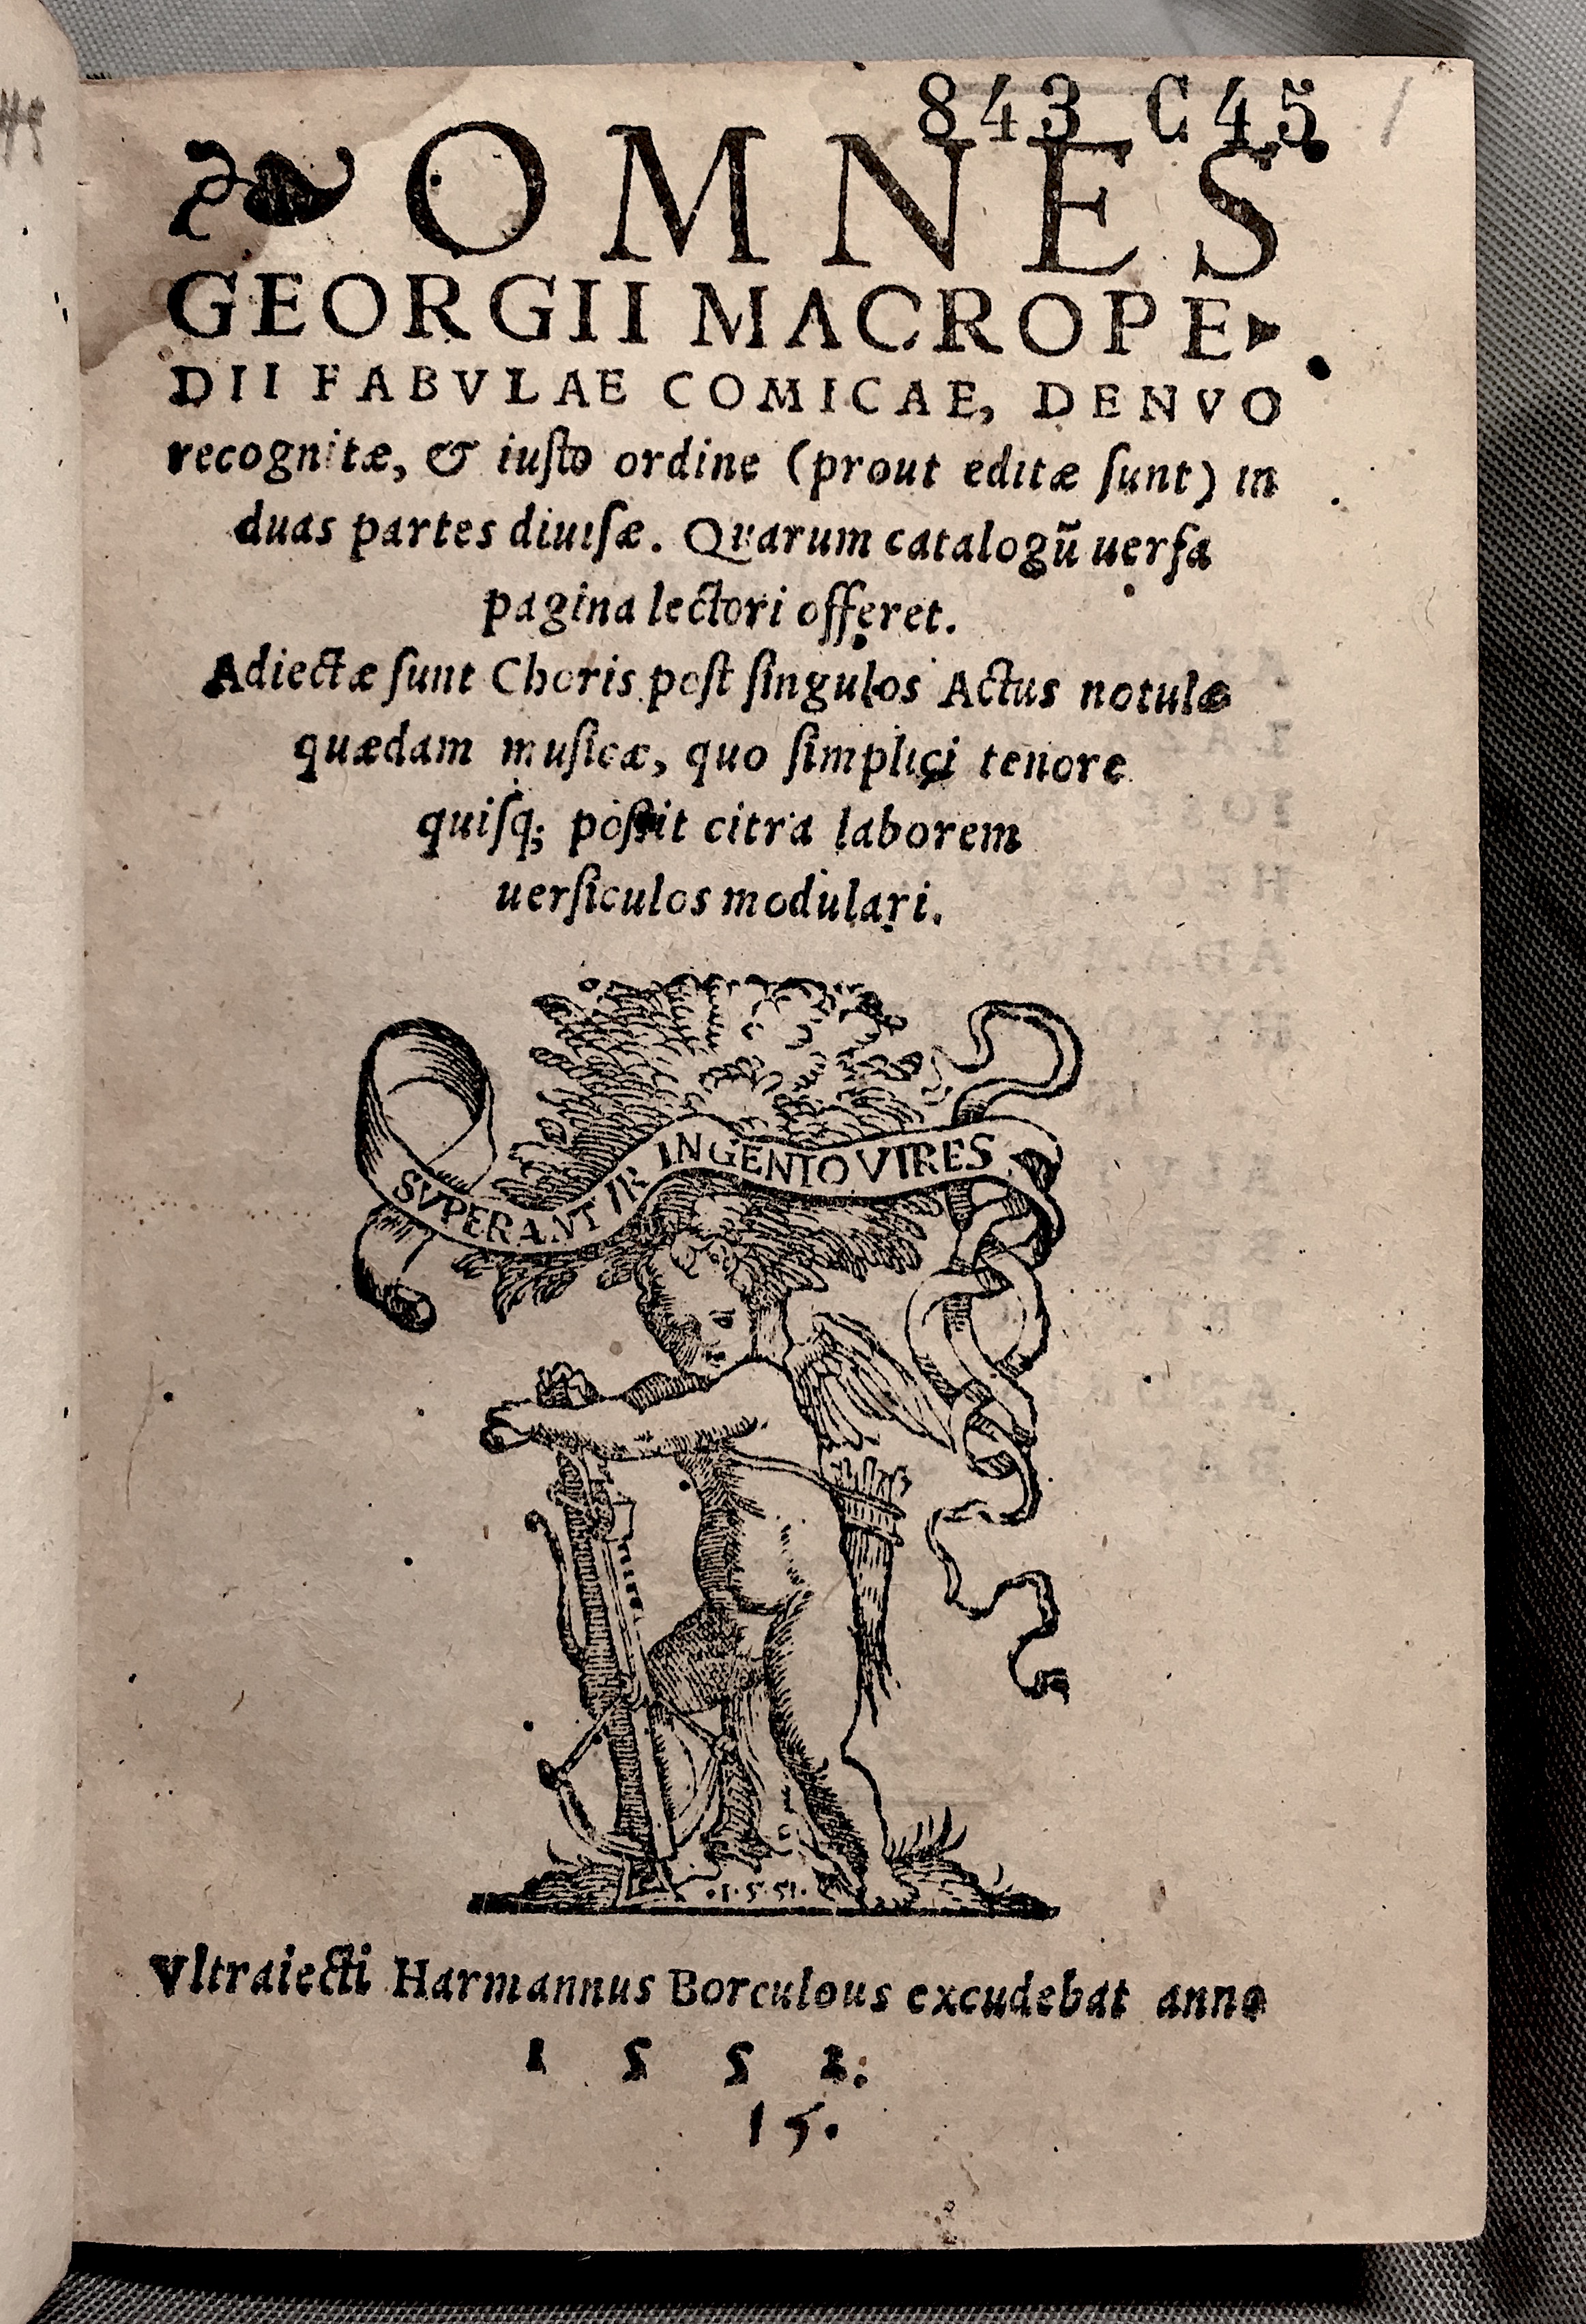 843 C45
OMNES
GEORGII MACROPE-
DII FABVLAE COMICAE, DENVO
recognitæ, & iuſto ordine (prout editæ ſunt) in
duas partes diuiſæ. Quarum catalogũ uerſa
pagina lectori offeret.
Adiectæ ſunt Choris poſt ſingulos Actus notulæ
quædam muſicæ, quo ſimplici tenore
quiſq; poſsit citra laborem
uerſiculos modulari.
SVPERANTVR INGENIO VIRES
.1.5.51.
Vltraiecti Harmannus Borculous excudebat anno
1 5 5 2.
15.